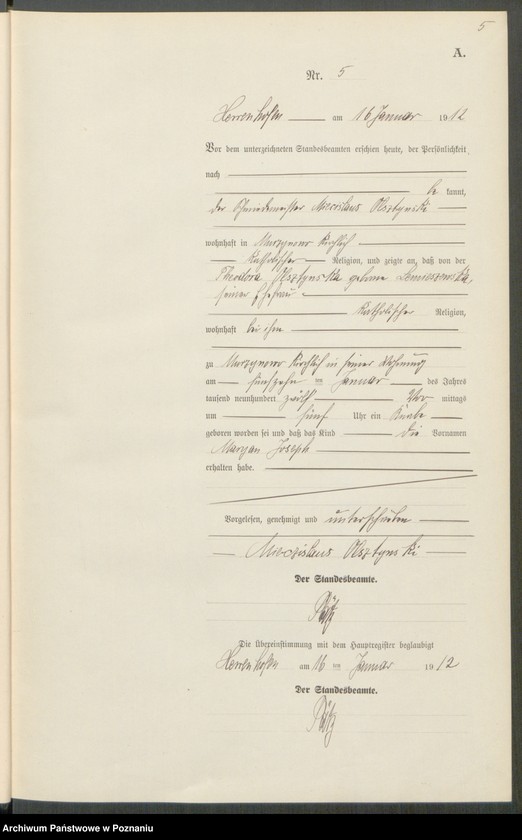 5
A.
Nr. 5
Herrenhofen am 16 Januar 1912
Vor dem unterzeichneten Standesbeamten erschien heute, der Persönlichkeit
nach
be kannt,
der Schmiedemeister Miecislaus Olsztynski
wohnhaft in Murzynowo kirchlich
katholischer Religion, und zeigte an, daß von der
Theodora Olsztynska geborne
seiner Ehefrau
katholischer Religion,
wohnhaft bei ihm
zu Murzynowo kirchlich in seiner Wohnung
am fünfzehn ten Januar des Jahres
tausend neunhundert zwölf Vor mittags
um fünf Uhr ein Knabe
geboren worden sei und daß das Kind die Vornamen
Maryan Joseph
erhalten habe.
Vorgelesen, genehmigt und unterschrieben
Miecislaus Olsztynski
Der Standesbeamte.
Die Übereinstimmung mit dem Hauptregister beglaubigt
Herrenhofen am 16 ten Januar 1912
Der Standesbeamte.
Archiwum Państwowe w Poznaniu